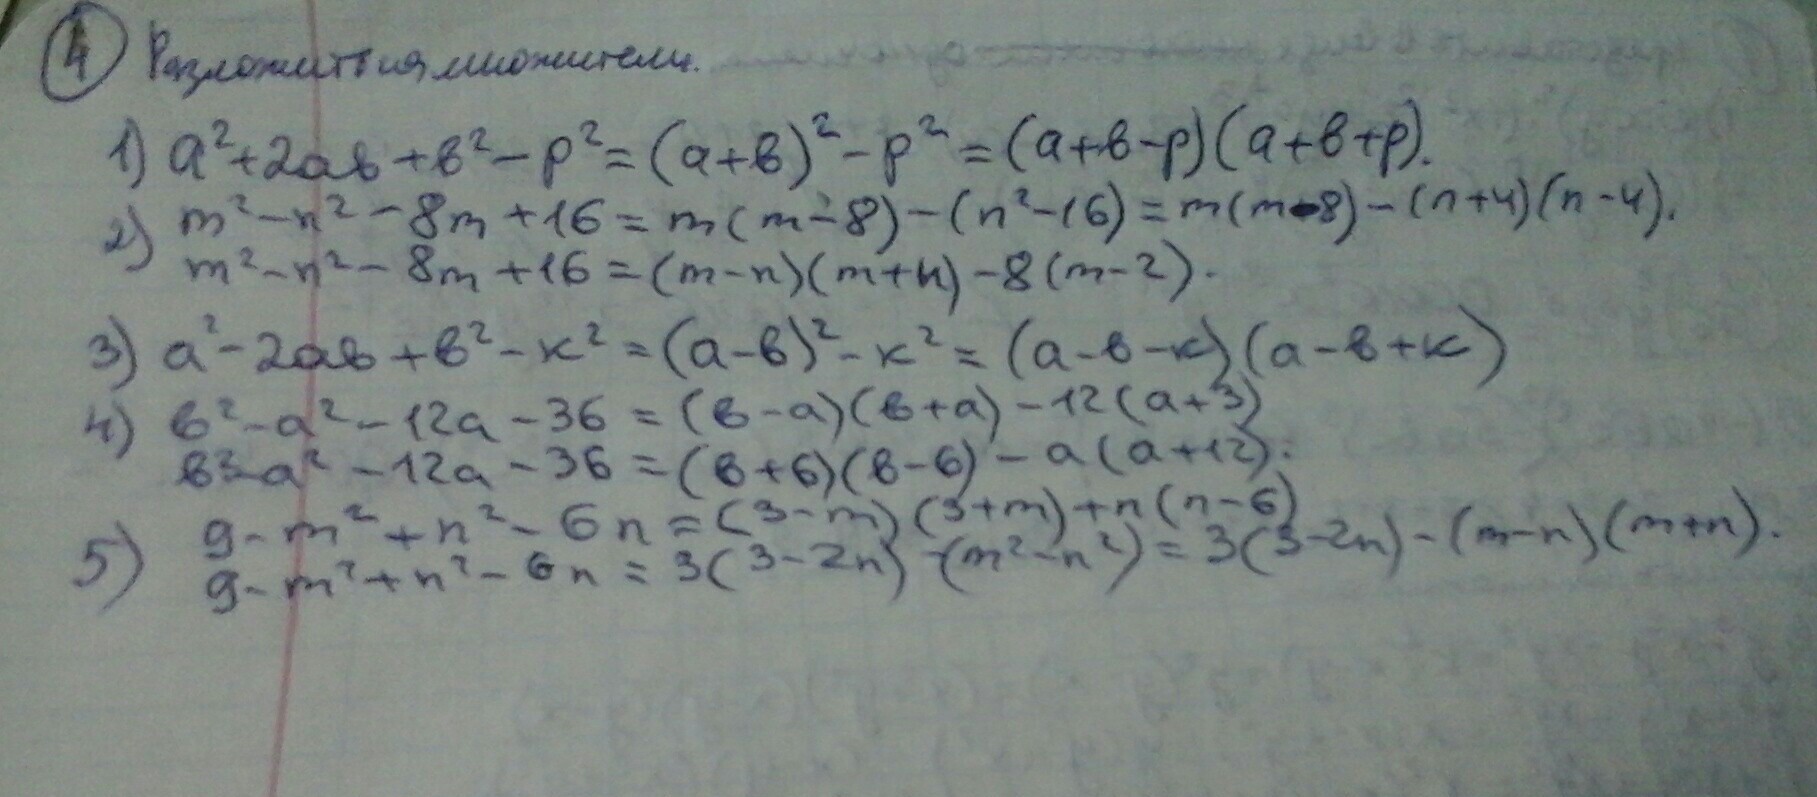 4 Разложить на множители.
1) a²+2ав+в²-p²=(a+в)²-p²=(a+в-p)(a+в+p).
2) m²-n²-8m+16=m(m-8)-(n²-16)=m(m-8)-(n+4)(n-4).
m²-n²-8m+16=(m-n)(m+n)-8(m-2).
3) a²-2ав+в²-к²=(a-в)²-к²=(a-в-к)(a-в+к)
4) в²-a²-12a-36=(в-a)(в+a)-12(a+3)
в²-a²-12a-36=(в+6)(в-6)-a(a+12).
5) 9-m²+n²-6n=(3-m)(3+m)+n(n-6)
9-m²+n²-6n=3(3-2n)-(m²-n²)=3(3-2n)-(m-n)(m+n).